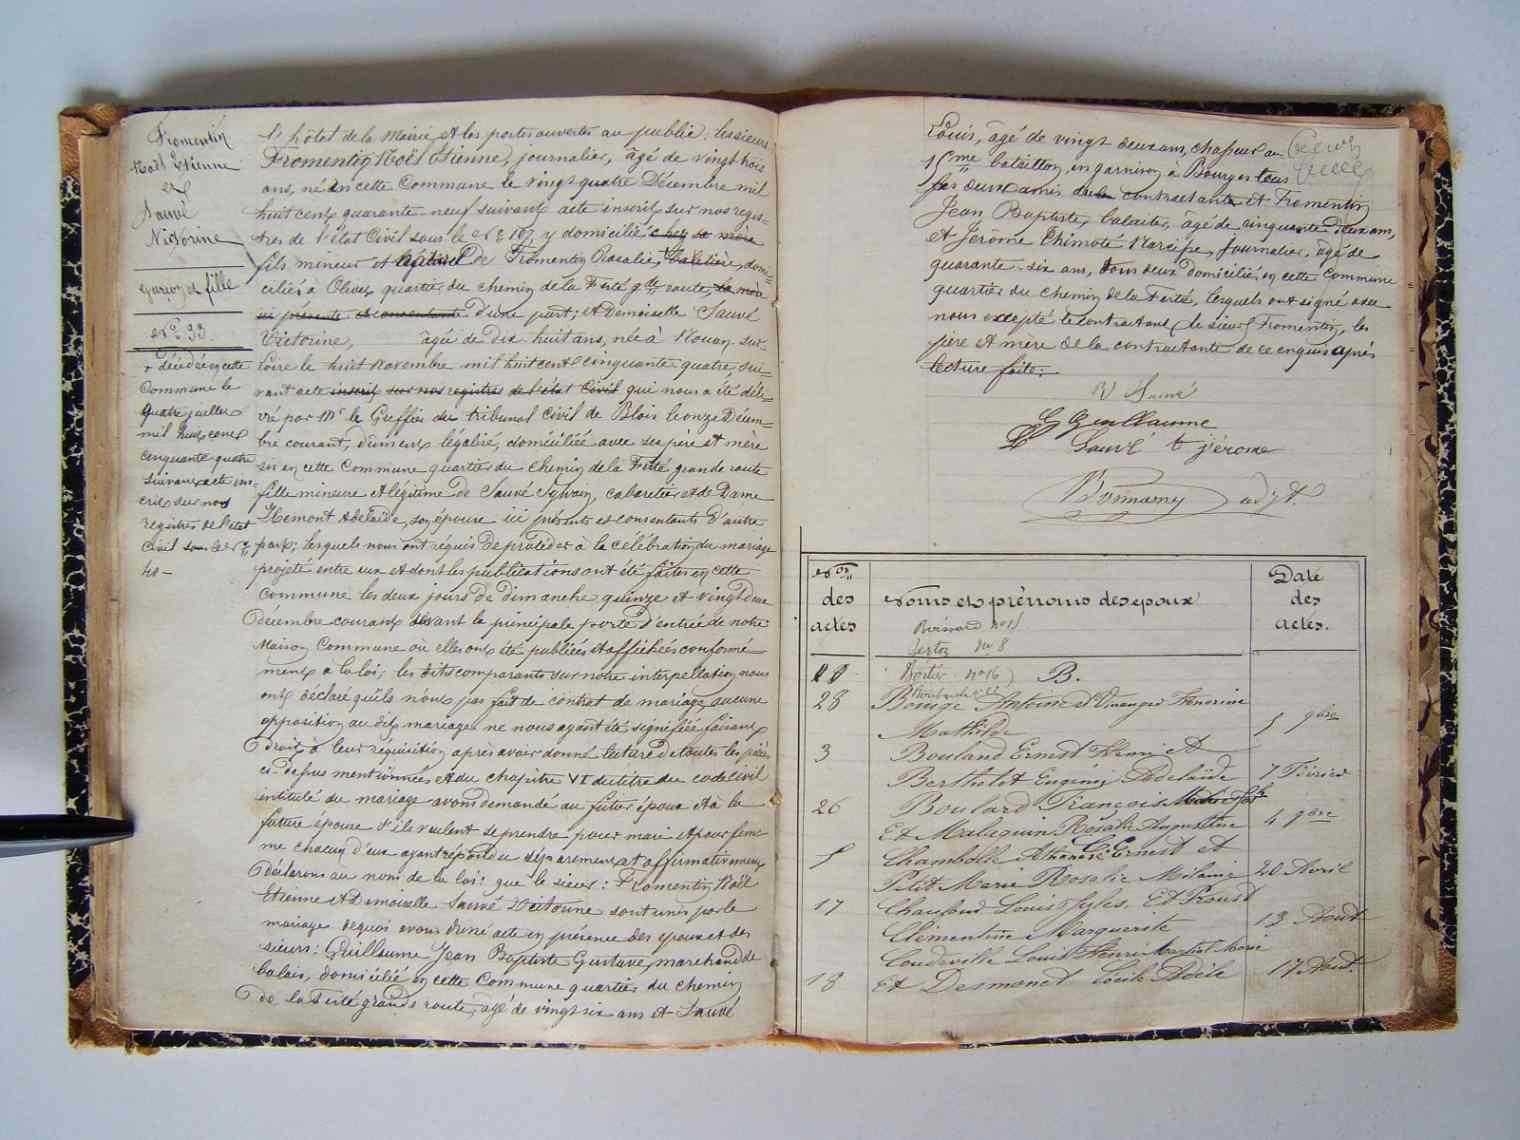 Fromentin
Noël Etienne
et
Sauvé
Victorine
garçon et fille
N° 33.
+ décédée en cette
Commune le
quatre juillet
mil huit cent
cinquante quatre
suivant acte ins-
crit sur nos
registres de l'état
Civil sous le N°
40 –
l'hôtel de la Mairie, et les portes ouvertes au public : les sieurs
Fromentin Noël Etienne, journalier, âgé de vingt trois
ans, né en cette Commune le vingt quatre Décembre mil
huit cent quarante neuf suivant acte inscrit sur nos regis-
tres de l'état Civil sous le N° 107, y domicilié chez sa mère
fils mineur et naturel de Fromentin Rosalie, domi-
ciliée à Olivet quartier du chemin de la Ferté gde route, sa mère
ici présente et consentante d'une part ; et Demoiselle Sauvé
Victorine, âgée de dix-huit ans, née à Nouan-sur-
Loire le huit Novembre mil huit cent cinquante quatre, sui-
vant acte inscrit sur nos registres de l'état Civil qui nous a été déli-
vré par Mr le Greffier du tribunal Civil de Blois le onze Décem-
bre courant, dûment légalisé, domiciliée avec ses père et mère
sis en cette Commune quartier du chemin de la Ferté grande route
fille mineure et légitime de Sauvé Sylvain, cabaretier et de Dame
Hemont Adélaïde, son épouse ici présents et consentants d'autre
part ; lesquels nous ont requis de procéder à la célébration du mariage
projeté entre eux et dont les publications ont été faites en cette
Commune les deux jours de dimanche quinze et vingt deux
Décembre courant devant la principale porte d'entrée de notre
Maison Commune où elles ont été publiées et affichées conformé-
ment à la loi ; les dits comparants sur notre interpellation nous
ont déclaré qu'ils n'ont pas fait de contrat de mariage aucune
opposition au dit mariage ne nous ayant été signifiée faisant
Droit à leur réquisition après avoir donné lecture de toutes les pièces
ci-dessus mentionnées et du chapitre VI du titre du code civil
intitulé du mariage avons demandé au futur époux et à la
future épouse s'ils veulent se prendre pour mari et pour fem-
me chacun d'eux ayant répondu séparément et affirmativement
Déclarons au nom de la loi : que le sieur : Fromentin Noël
Etienne et Demoiselle Sauvé Victorine sont unis par le
mariage de quoi avons dressé acte en présence des époux et des
sieurs : Guillaume Jean Baptiste Gustave, marchand de
balais, domicilié en cette Commune quartier du chemin
de la Ferté grande route, âgé de vingt six ans et Sauvé
Louis, âgé de vingt deux ans, chasseur au
15me bataillon en garnison à Bourges tous
les deux amis de la contractante et Fromentin
Jean Baptiste, balaitier, âgé de cinquante deux ans,
et Jérôme Thimote Narcisse, journalier, âgé de
quarante-six ans, tous deux domiciliés en cette Commune
quartier du chemin de la Ferté, lesquels ont signé avec
nous excepté le contractant, le sieur Fromentin, les
père et mère de la contractante de ce enquis après
lecture faite.
V Sauvé
G Guillaume
L Sauvé t jérome
Bonmarny adjt.
Nos des actes
Noms et prénoms des époux
Date des actes.
Bernard no 15
Bertoz du 8
Bortier no 16
B.
28
Bouige Antoine et
Mathilde
5 9bre
3
Bouland Ernest Henri et
Berthelot Eugénie Adelaïde
7 Février
26
Boulard François
Et Malaquin Rosalie Augustine
4 9bre
C.
5
Chambolle Athanase Ernest et
Petit Marie Rosalie Mélanie
20 Avril
17
Chaufond Louis Jules Et Proust
Clémentine Marguerite
13 Août
18
Coudaville Louis Henri
Et Desmonet Lucile Adèle
17 Août.